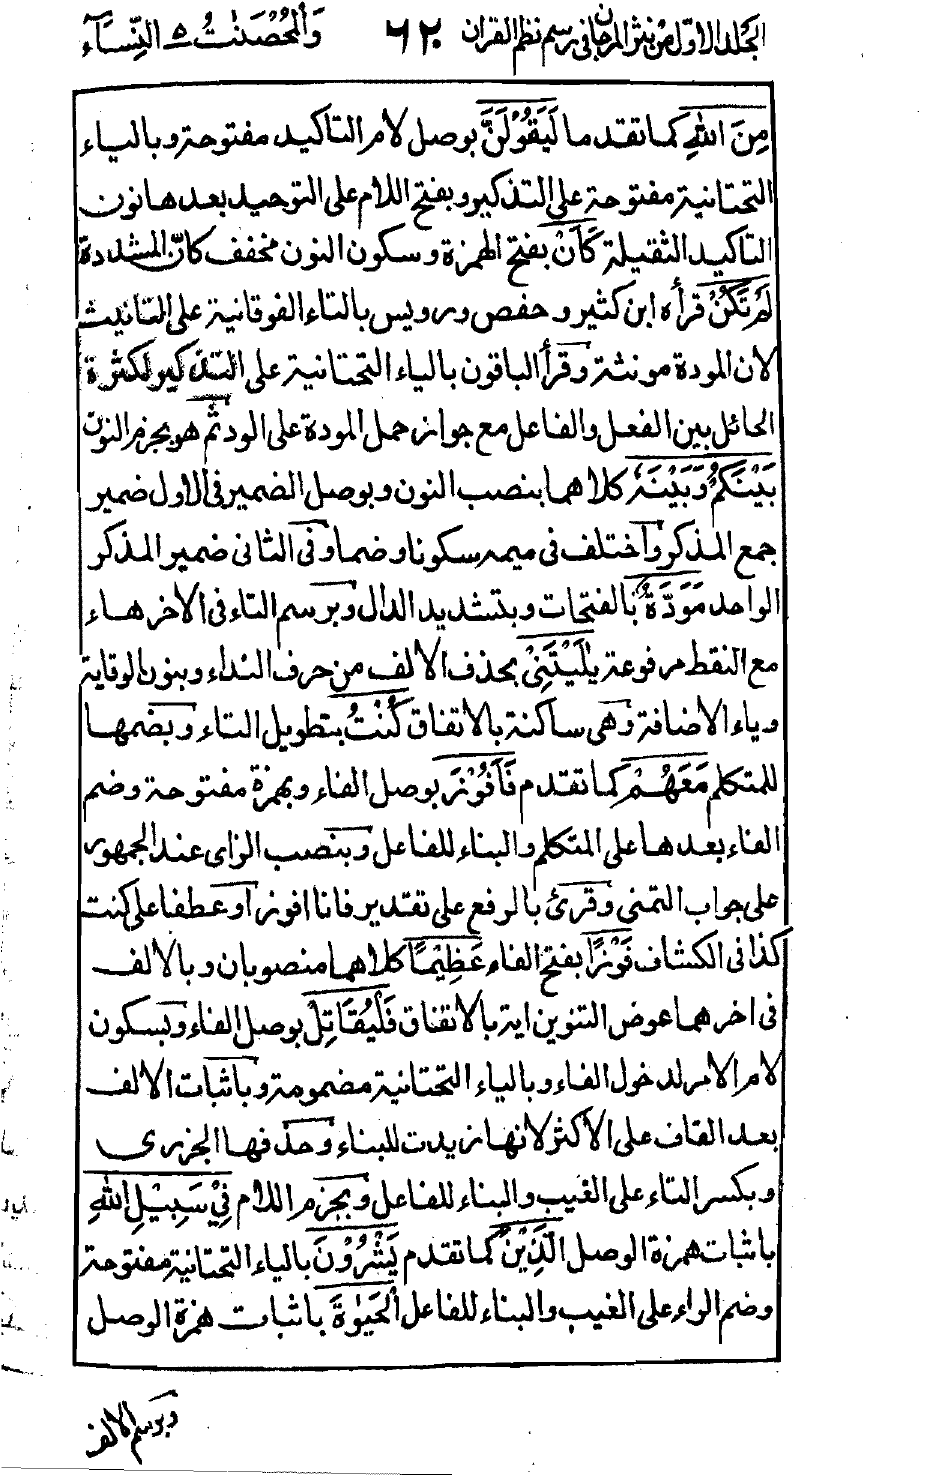 الجلد الاول من نثر المرجان فى رسم نظم القران ٦٢٠ والمحصنٰت ٥ النساء
مِنَ اللهِ كما تقدم ما لَيَقُوْلَنَّ بوصل لام التاكيد مفتوحة وبالياء
التحتانية مفتوحة على التذكير وبفتح اللام على التوحيد بعدها نون
التاكيد الثقيلة كَاَنْ بفتح الهمزة وسكون النون مخفف كانّ المشددة
لَمْ تَكُنْ قرأه ابن كثير وحفص ورويس بالتاء الفوقانية على التانيث
لان المودة مونثة وقرأ الباقون بالياء التحتانية على التذكير لكثرة
الحائل بين الفعل والفاعل مع جواز حمل المودة على الود ثم هو بجزم النون
بَيْنَكُمْ وَبَيْنَهٗ كلاهما بنصب النون وبوصل الضمير فى الاول ضمير
جمع المذكر واختلف فى ميمه سكونا وضما وفى الثانى ضمير المذكر
الواحد مَوَدَّةٌ بالفتحات وبتشديد الدال وبرسم التاء فى الاخر هاء
مع النقط مرفوعة يٰلَيْتَنِىْ بحذف الالف من حرف النداء وبنون الوقاية
وياء الاضافة وهى ساكنة بالاتفاق كُنْتُ بتطويل التاء وبضمها
للمتكلم مَعَهُمْ كما تقدم فَاَفُوْزَ بوصل الفاء وبهمزة مفتوحة وضم
الفاء بعدها على المتكلم والبناء للفاعل وبنصب الزاى عند الجمهور
على جواب التمنى وقرئ بالرفع على تقدير فانا افوز او عطفا على كنت
كذا فى الكشاف فَوْزًا بفتح الفاء عَظِيْمًا كلاهما منصوبان وبالالف
فى اخرهما عوض التنوين اية بالاتفاق فَلْيُقَاتِلْ بوصل الفاء وبسكون
لام الامر لدخول الفاء وبالياء التحتانية مضمومة وباثبات الالف
بعد القاف على الاكثر لانها زيدت للبناء وحذفها الجزرى
وبكسر التاء على الغيب والبناء للفاعل وبجزم اللام فِىْ سَبِيْلِ اللهِ
باثبات همزة الوصل الَّذِيْنَ كما تقدم يَشْرُوْنَ بالياء التحتانية مفتوحة
وضم الراء على الغيب والبناء للفاعل الْحَيٰوةَ باثبات همزة الوصل
وبرسم الالف